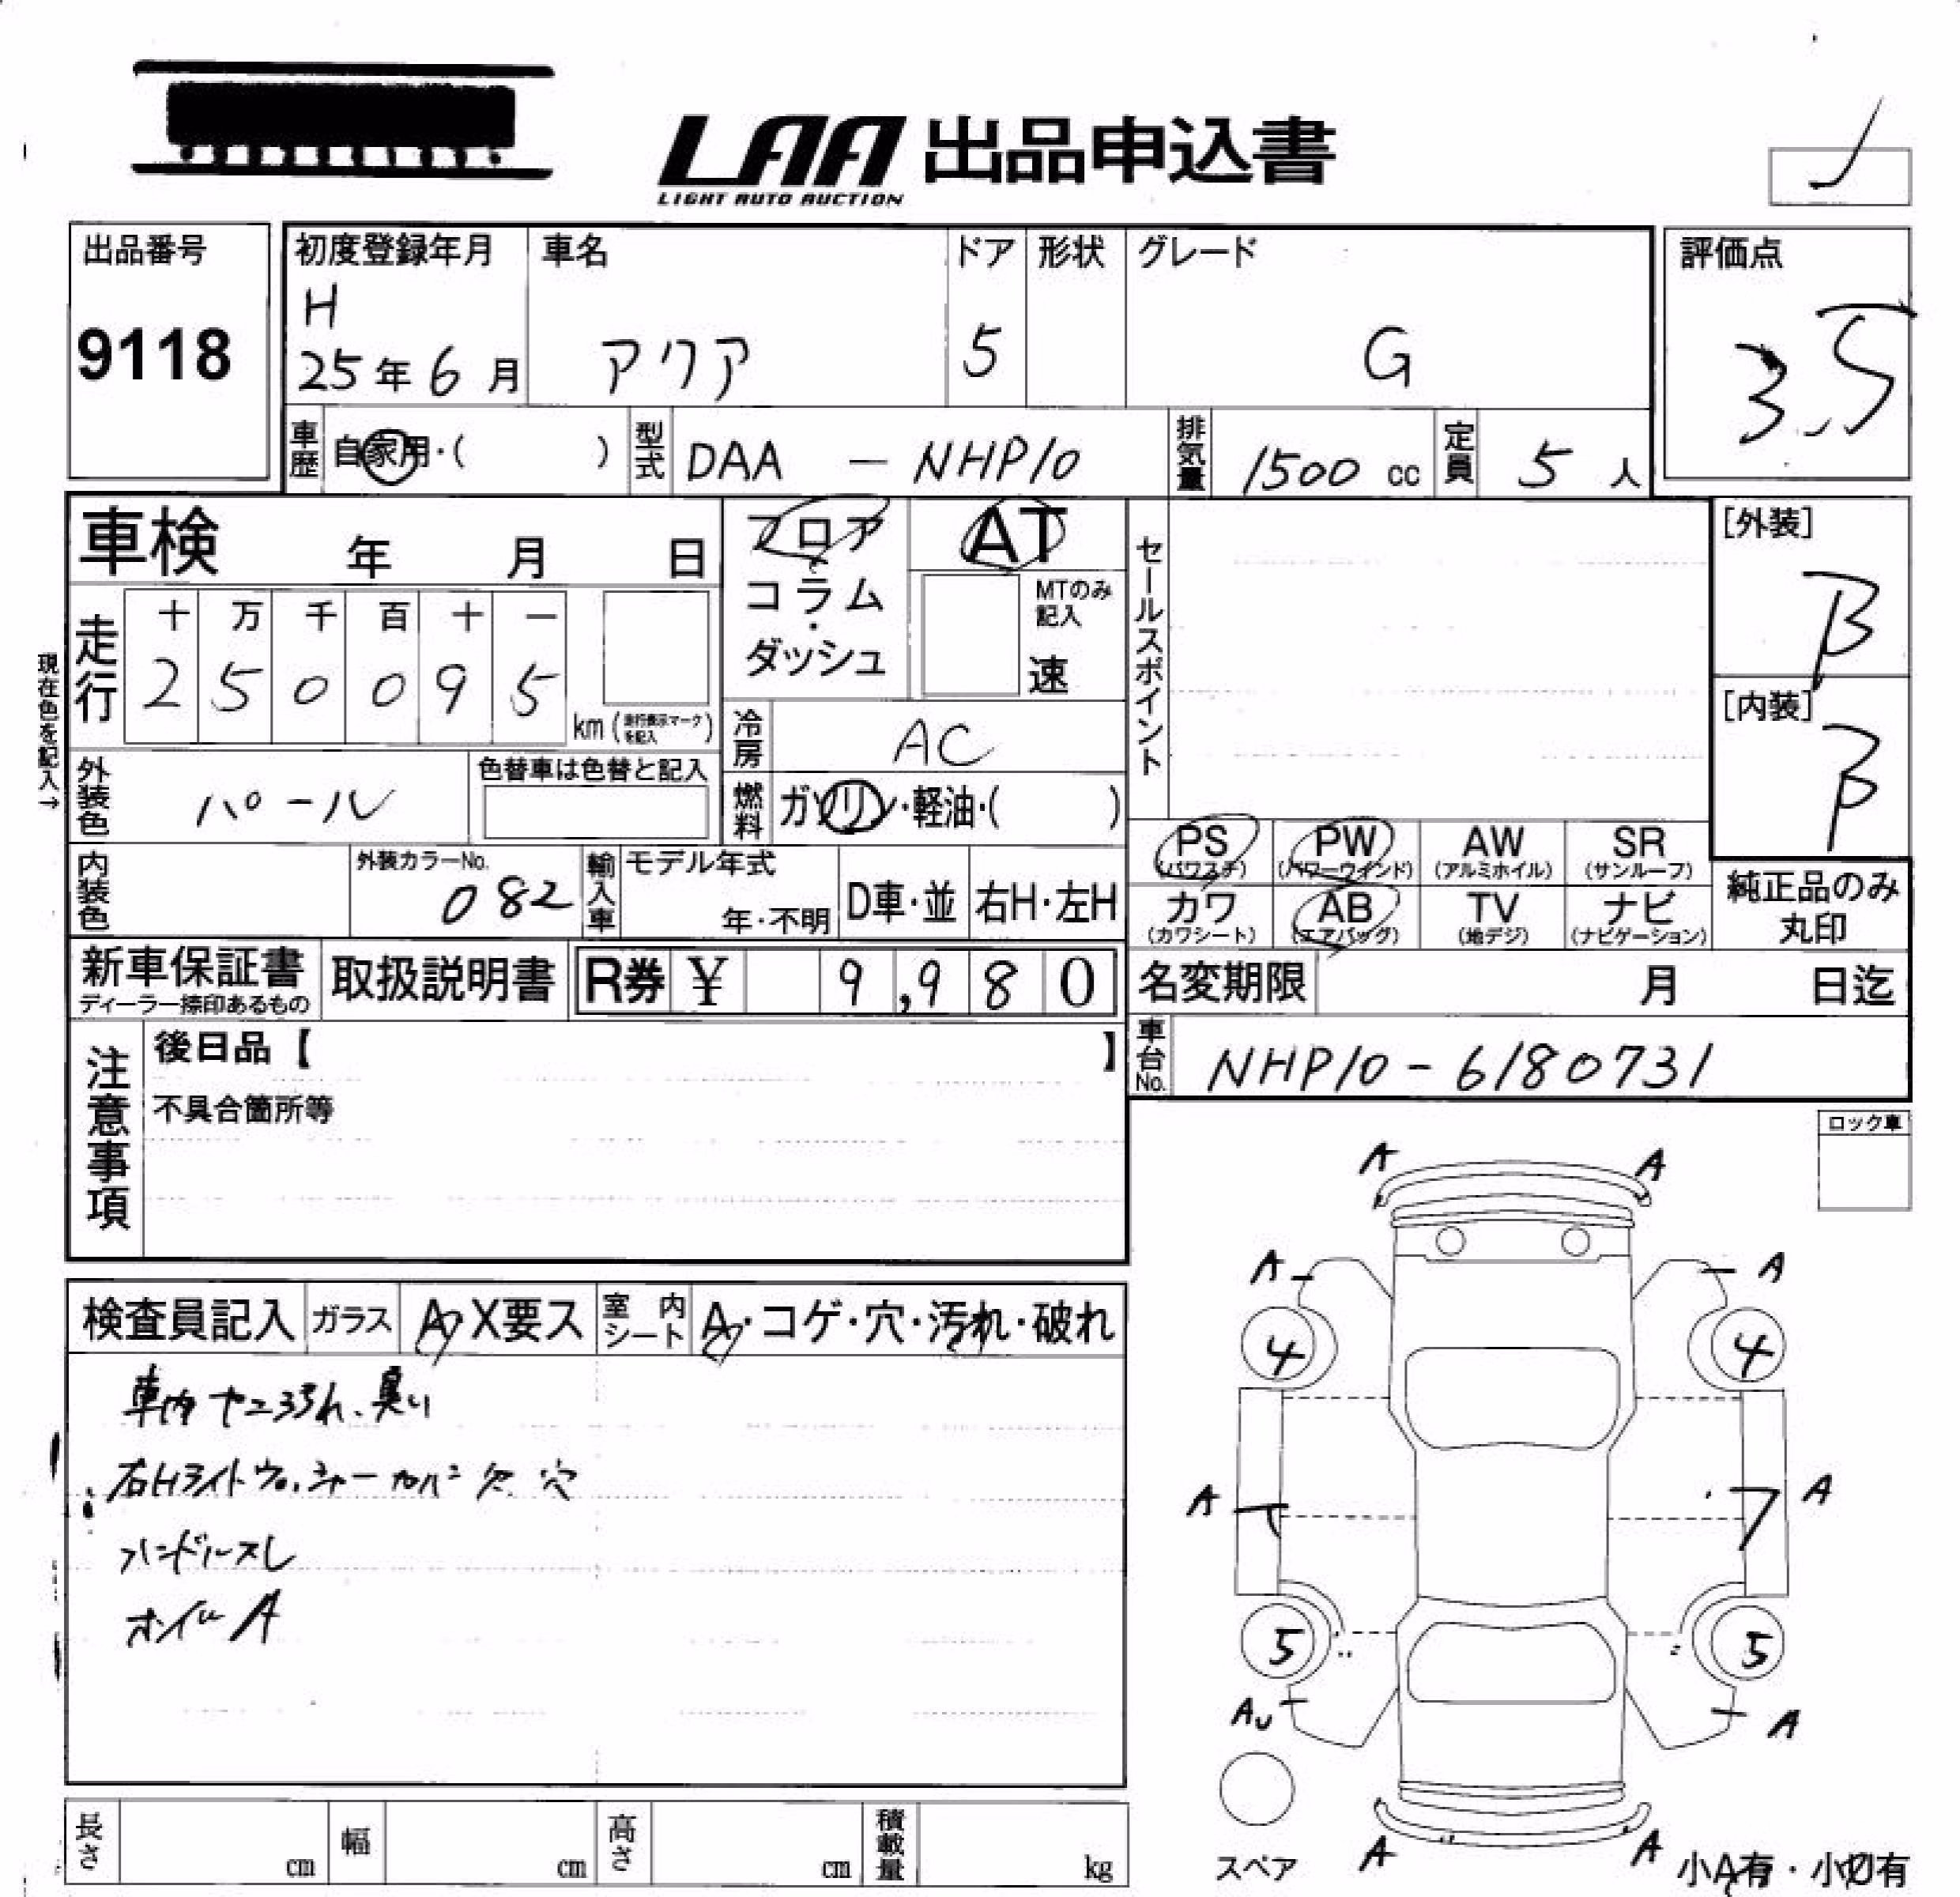 LAA 出品申込書
LIGHT AUTO AUCTION
出品番号
9118
初度登録年月
H
25年6月
車名
アクア
ドア
5
形状
グレード
G
評価点
3.5
車歴
自家用・( )
型式
DAA - NHP10
排気量
1500 cc
定員
5 人
車検 年 月 日
フロア
・
コラム
・
ダッシュ
AT
MTのみ
記入
速
セールスポイント
[外装]
B
[内装]
B
現在色を記入→
走行
十 万 千 百 十 一
2 5 0 0 9 5
km(走行表示マークを記入)
冷房
AC
外装色
パール
色替車は色替と記入
燃料
ガソリン・軽油・( )
PS
(パワステ)
PW
(パワーウインド)
AW
(アルミホイル)
SR
(サンルーフ)
カワ
(カワシート)
AB
(エアバッグ)
TV
(地デジ)
ナビ
(ナビゲーション)
純正品のみ
丸印
内装色
外装カラーNo.
082
輸入車
モデル年式
年・不明
D車・並
右H・左H
新車保証書
ディーラー捺印あるもの
取扱説明書
R券 ¥ 9,980
名変期限 月 日迄
車台No.
NHP10-6180731
注意事項
後日品【 】
不具合箇所等
ロック車
検査員記入
ガラス
A・X要ス
室内シート
A・コゲ・穴・汚れ・破れ
車内ヤニヨゴレ、臭い
右Hライトウォッシャーカバー欠 穴
ハンドルスレ
ホイルA
A A
A A
4 4
A A
5 5
AU A
A A
スペア
小A有・小U有
長さ cm
幅 cm
高さ cm
積載量 kg